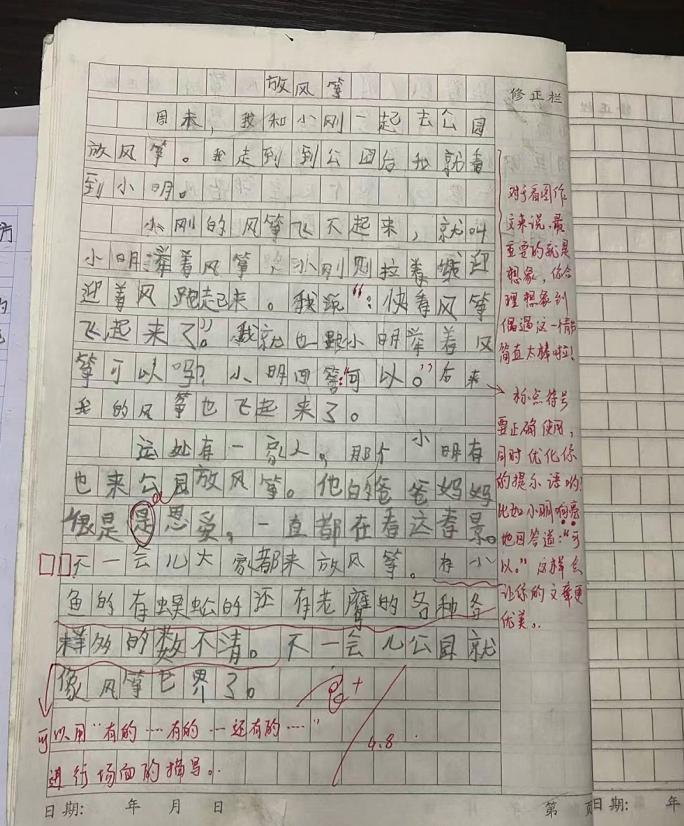 放风筝
修正栏
周末，我和小刚一起去公园
放风筝。我走到到公园后我就看
到小明。
小刚的风筝飞不起来，就叫
小明举着风筝，小刚则拉着线迎
迎着风跑起来。我说“：快看风筝
飞起来了”。我就也跟小明举着风
筝可以吗？小明回答：“可以。”后来
我的风筝也飞起来了。
远处有一家人，那个小明有
也来公园放风筝。他的爸爸妈妈
很是是恩爱，一直都在看这春景。
不一会儿大家都来放风筝。有小
鱼的有蜈蚣的还有老鹰的各种各
样多的数不清。不一会儿公园就
像风筝世界了。
对于看图作
文来说，最
重要的就是
想象，你合
理想象到
偶遇这一情节
简直太棒啦！
标点符号
要正确使用，
同时优化你
的提示语哟！
比如小明响亮
地回答道：“可
以。”这样会
让你的文章更
优美。
可以用“有的……有的……还有的……”
进行场面的描写。
4.8
日期： 年 月 日
第 页
日期： 年 月